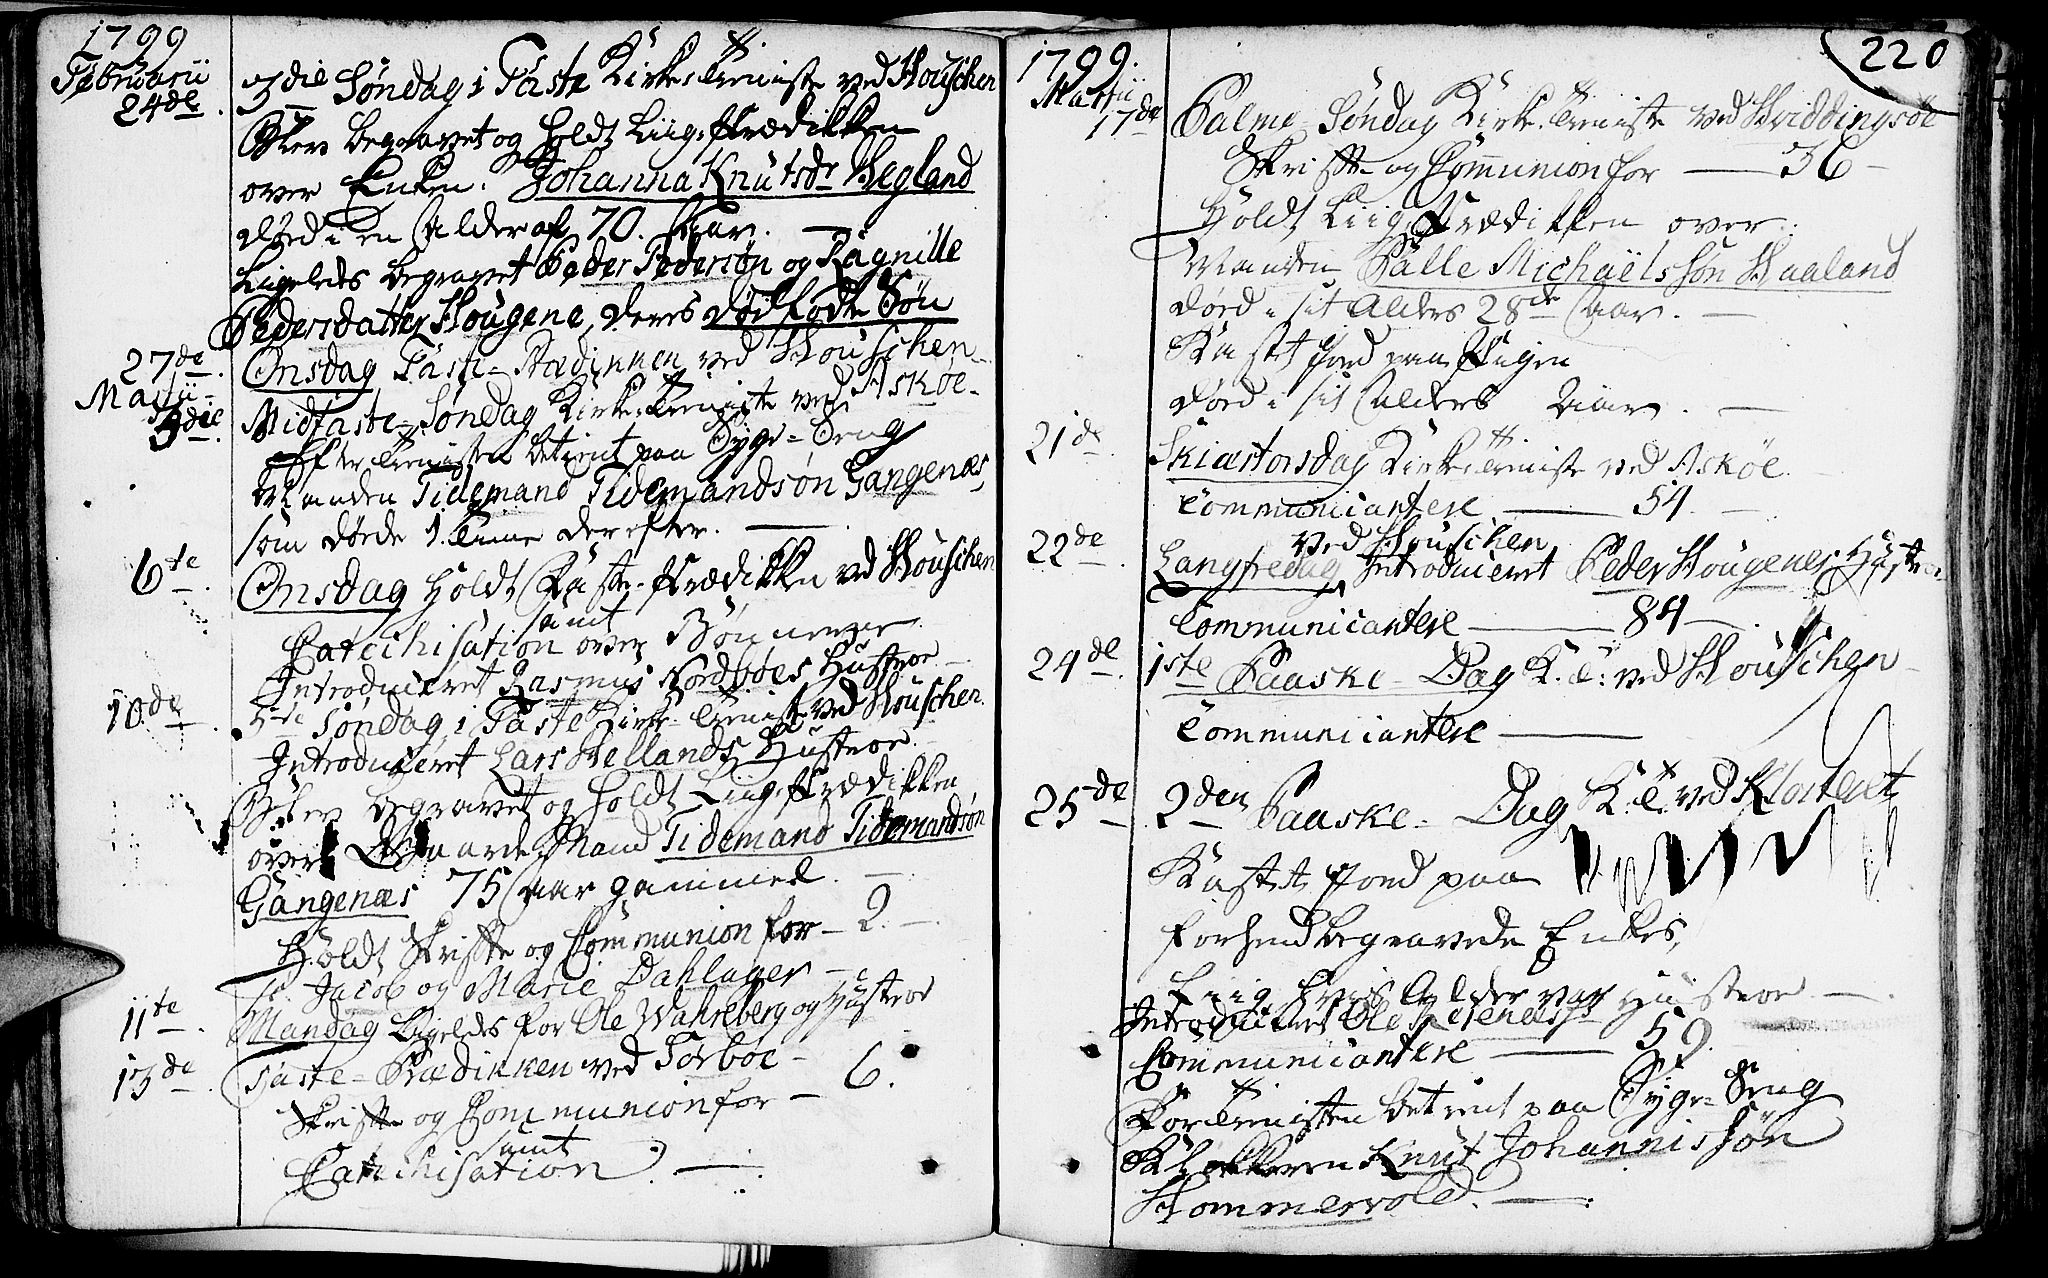 1799
Februarii
24de.
3die Søndag i Faste Kirke-Tieniste ved Houschen
Blev begravet og holdt Liig-Prædikken
over Enken Johanna Knutsdr Hegland
død i en Alder af 70. Aar.
Ligeledes begravet Peder Pedersøn og Ragnille
Pedersdatter Hougene, deres dødfødte Søn
27de.
Onsdag Faste-Prædikken ved Houschen
Martii
3die.
Midfaste-Søndag Kirke-Tieniste ved Askøe
Efter Tienisten betient paa Syge-Seng
Manden Tidemand Tidemandsøn Gangenæs
som døde 1. Time derefter.
6te.
Onsdag holdt Faste-Prædikken ved Houschen
samt
Catechisation over Bønnerne
Introduceret Rasmus Nordbøes Hustroe
10de.
5te Søndag i Faste Kirke-Tieniste ved Houschen
Introduceret Lars Hellands Hustroe
Blev begravet og holdt Liig-Prædikken
over Gaarde-Mand Tidemand Tidemandsøn
Gangenæs 75 Aar gammel.
Holdt Skrifte og Communion for - 2.
Jacob og Marie Dahlager
11te.
Mandag Ligeledes for Ole Wahreberg og Hustroe
13de.
Faste-Prædikken ved Sørboe
Skrifte og Communion for - 6.
samt
Catechisation.
220
1799.
Martii
17de
Palme-Søndag Kirke-Tieniste ved Hviddingsøe
Skrifte og Communion for - 36 -
Holdt Liig-Prædikken over
Manden Palle Michaëlssøn Haaland
død i sit Alders 28de Aar.
Kastet Jord paa Pigen
død i sit Alders Aar.
21de.
Skiærtorsdag Kirke-Tieniste ved Askøe
Communicantere - 54
22de.
ved Houschen
Langfredag Introduceret Peder Hougenes Hustroe
Communicantere - 84
24de.
1ste Paaske-Dag K. T. ved Houschen
Communicantere -
25de
2den Paaske-Dag K. T. ved Klosteret
Kastet Jord paa
forhend begravede Enkes,
Liig, hvis Alder var
Introduceret Ole Hustroe
Communicantere - 59
For Tienisten betient paa Syge-Seng
Klokkeren Knut Johannissøn
Hommervold.